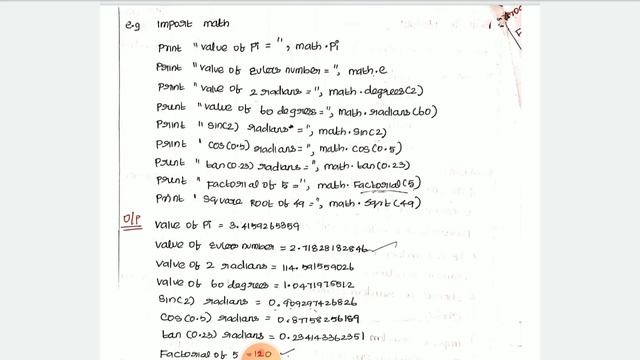 e.g import math
Print "value of Pi = ", math.Pi
Print "value of Eulers number = ", math.e
Print "value of 2 radians = ", math.degrees(2)
Print "value of 60 degrees = ", math.radians(60)
Print "sin(2) radians" = ", math.sin(2)
Print " cos(0.5) radians = ", math.cos(0.5)
Print "tan(0.23) radians = ", math.tan(0.23)
Print "Factorial of 5 = ", math.Factorial(5)
Print " Square Root of 49 = ", math.sqrt(49)
O/P
value of Pi = 3.4159265359
value of Eulers number = 2.71828182846
value of 2 radians = 114.591559026
value of 60 degrees = 1.0471975512
sin(2) radians = 0.909297426826
cos(0.5) radians = 0.87758256189
tan (0.23) radians = 0.234143362351
Factorial of 5 = 120